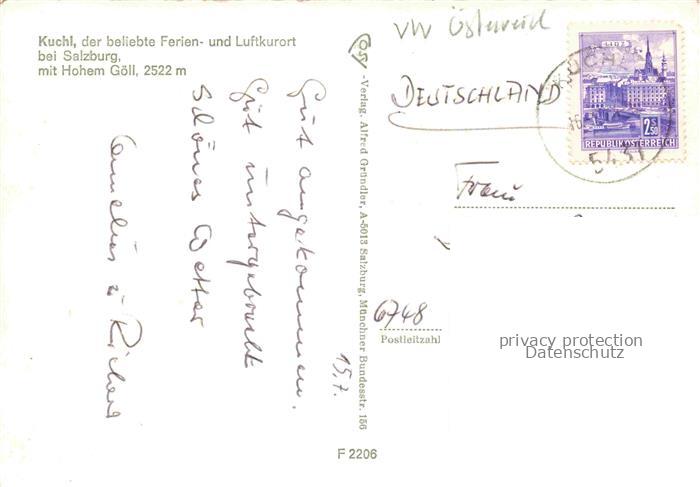 Kuchl, der beliebte Ferien- und Luftkurort
bei Salzburg,
mit Hohem Göll, 2522 m
15.7.
Gut angekommen.
Gut untergebracht
Schönes Wetter
Cornelius u Richard
-Verlag, Alfred Gründler, A-5013 Salzburg, Münchner Bundesstr. 156
F 2206
VW Österreich
DEUTSCHLAND
LINZ
2S50
REPUBLIK ÖSTERREICH
KUCHL
5431
Frau
6748
Postleitzahl
privacy protection
Datenschutz